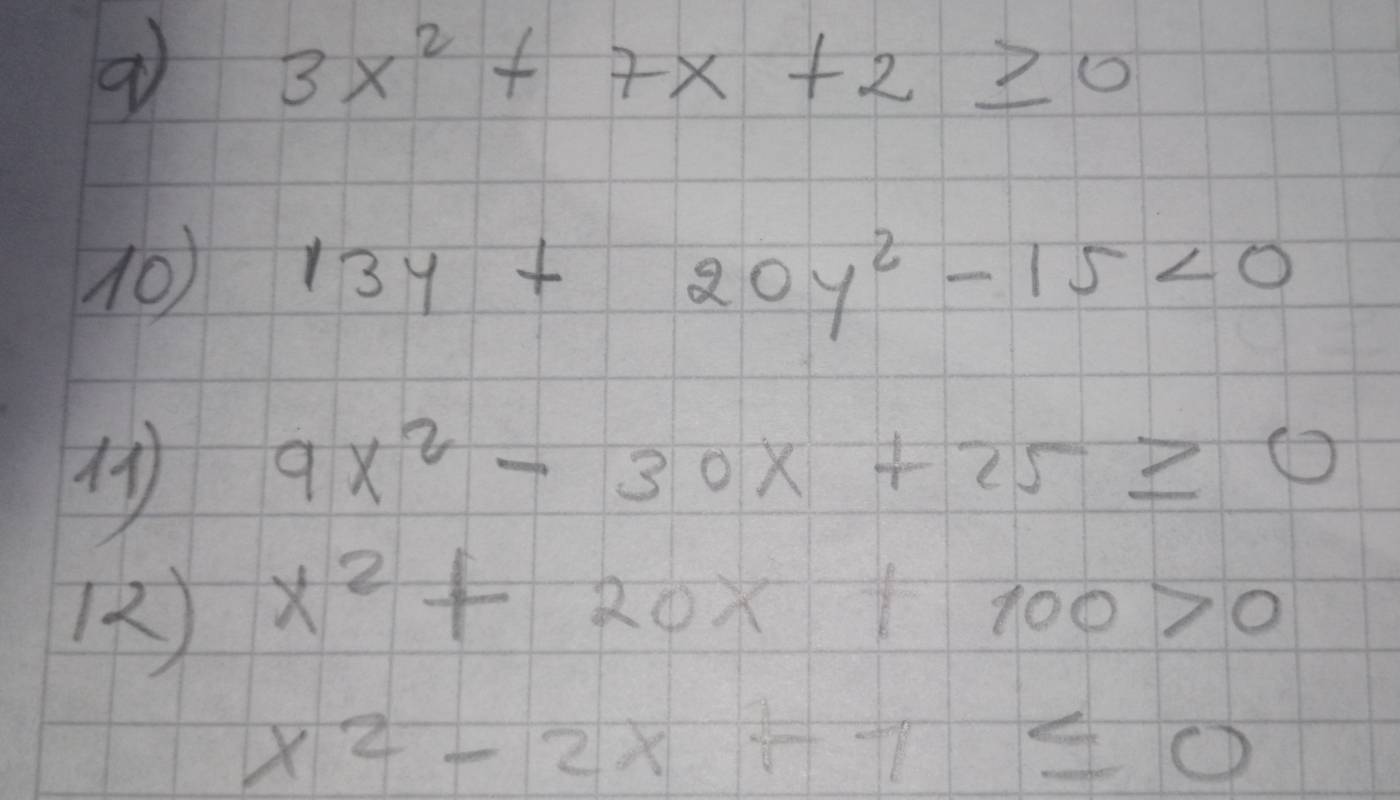 9) 3x² + 7x + 2 ≥ 0
10) 13y + 20y² - 15 < 0
11) 9x² - 30x + 25 ≥ 0
12) x² + 20x + 100 > 0
x² - 2x + 1 ≤ 0